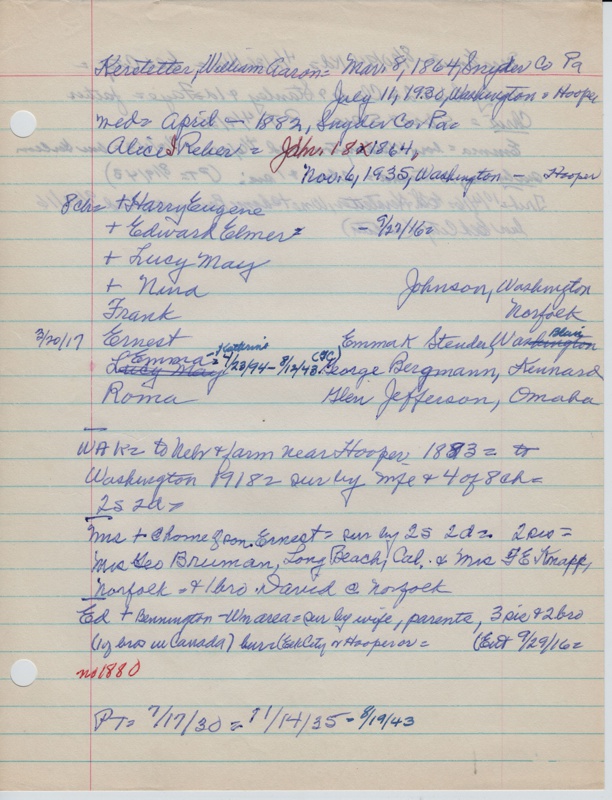 Kerstetter, William Aaron = Mar. 8, 1864, Snyder Co Pa
July 11, 1930, Washington = Hooper
med = April - 1882, Snyder Co Pa =
Alice S Reber = Jan. 18 1864,
Nov. 6, 1935, Washington - Hooper
8 ch = + Harry Eugene
+ Edward Elmer = - 9/27/16 =
+ Lucy May
+ Nina Johnson, Washington
Frank Norfolk
3/20/17 Ernest Emma K Stender, Washington Blair
Emma = Kathrine 4/23/94 - 8/12/43 (FC) George Bergmann, Kennard
Lucy May
Roma Glen Jefferson, Omaha
WAK = to Nebr & farm near Hooper 1883 = to
Washington 1918 = sur by wife & 4 of 8 ch =
2s 2d =
Mrs + @ home of son Ernest = sur by 2s 2d = 2 sis =
Mrs Geo Bruman, Long Beach, Cal. & Mrs F E Knapp,
Norfolk = & 1 bro David C Norfolk
Ed + Bennington - Wn area = sur by wife, parents, 3 sis & 2 bro
(1 of bros in Canada) bur (Elk City or Hooper or = (Ent 9/29/16 =
no 1880
PT = 7/17/30 = 11/14/35 - 8/19/43